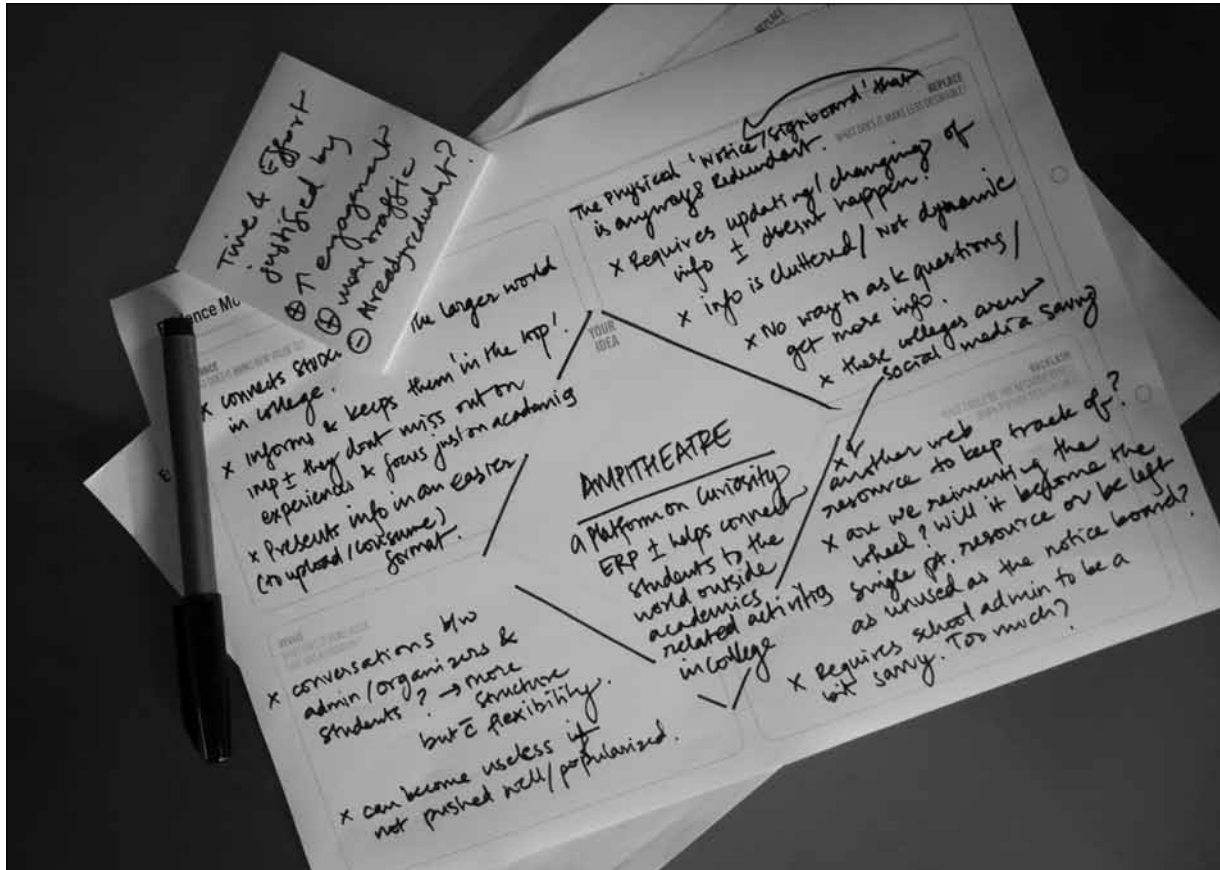 Time & Effort
justified by
⊕ ↑ engagement
⊕ more traffic
⊖ Already redundant?
REPLACE
WHAT DOES IT MAKE LESS DESIRABLE?
The physical 'Notice/signboard' that
is anyways Redundant.
x Requires updating/changing of
info ± doesnt happen?
x info is cluttered/ Not dynamic
x No way to ask questions/
get more info.
x these colleges arent
social media savvy
the larger world
x connects
in college.
x informs & keeps them 'in the loop'.
imp ± they dont miss out on
experiences & focus just on academics
x Presents info in an easier
(to upload/consume)
format.
YOUR
IDEA
AMPITHEATRE
a platform on curiosity
ERP ± helps connect
students to the
world outside
academics
related activities
in college
BACKLASH
another web
resource to keep track of?
x are we reinventing the
wheel? will it become the
single pt. resource or be left
as unused as the notice board?
x Requires school admin to be a
bit savvy. Too much?
x conversations b/w
admin/organizers &
students? → more
structure
but c̄ flexibility.
x can become useless if
not pushed well/popularized.